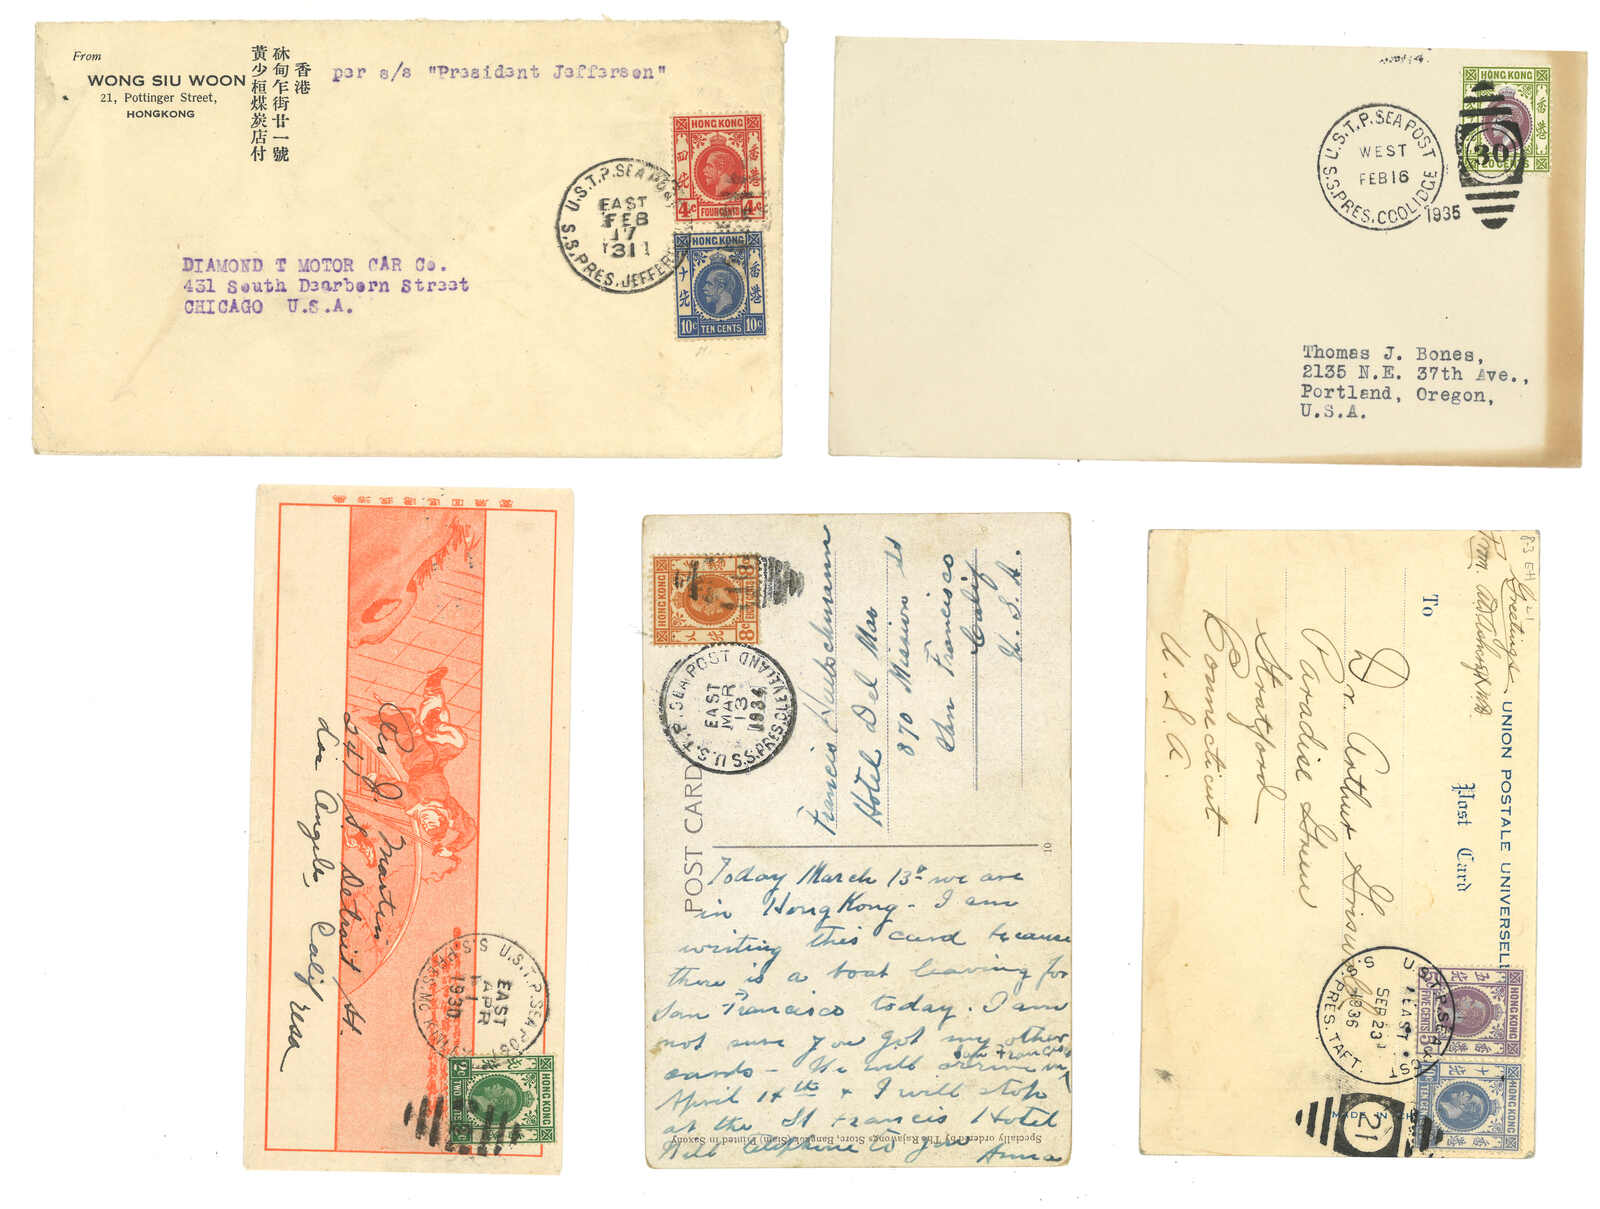 From
WONG SIU WOON
21, Pottinger Street,
HONGKONG
香港
砵甸乍街廿一號
黃少桓煤炭店付
per s/s "President Jefferson"
U.S.T.P. SEA POST
EAST
FEB
17
1931
S.S. PRES. JEFFERSON
HONG KONG
香港
四先
4c FOUR CENTS 4c
HONG KONG
香港
十先
10c TEN CENTS 10c
DIAMOND T MOTOR CAR Co.
431 South Dearborn Street
CHICAGO U.S.A.
U.S.T.P. SEA POST
WEST
FEB 16
1935
S.S. PRES. COOLIDGE
30
HONG KONG
20 CENTS
Thomas J. Bones,
2135 N.E. 37th Ave.,
Portland, Oregon,
U.S.A.
Geo J. Martin
241 S. Detroit St.
Los Angeles, Calif
U.S.T.P. SEA POST
EAST
APR
1
1930
HONG KONG
2c TWO CENTS
HONG KONG
8c EIGHT CENTS 8c
U.S.T.P. SEA POST
EAST
MAR
13
1934
S.S. PRES. CLEVELAND
POST CARD
Francis
Hotel Del Mar
870 Mission St
San Francisco
Calif
U.S.A.
10
Today March 13th we are
in Hong Kong. I am
writing this card because
there is a boat leaving for
San Francisco today. I am
not sure you got my other
cards - We will arrive in San Francisco
April 14th & I will stop
at the St Francis Hotel
Will telephone to you Anna
Specially ordered by The Rajawongs Store, Bangkok (Siam) Printed in Saxony
UNION POSTALE UNIVERSELLE
Post Card
To
Greetings
From
Dr. Arthur
Paradise Green
Stratford
Connecticut
U.S.A.
U.S.T.P. SEA POST
EAST
SEP 23
1936
S.S. PRES. TAFT.
21
HONG KONG
5c FIVE CENTS 5c
HONG KONG
MADE IN